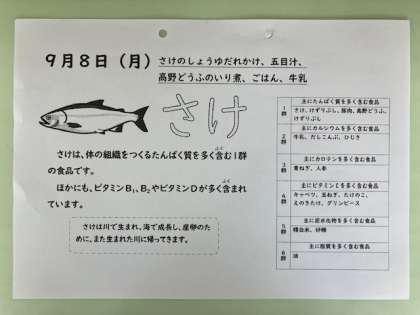 9月8日（月）
さけのしょうゆだれかけ、五目汁、
高野どうふのいり煮、ごはん、牛乳
さけ
さけは、体の組織をつくるたんぱく質を多く含む1群
の食品です。
ほかにも、ビタミンB₁、B₂やビタミンDが多く含まれ
ています。
さけは川で生まれ、海で成長し、産卵のた
めに、また生まれた川に帰ってきます。
1群
主にたんぱく質を多く含む食品
さけ、けずりぶし、豚肉、高野どうふ、
けずりぶし
2群
主にカルシウムを多く含む食品
牛乳、だしこんぶ、ひじき
3群
主にカロテンを多く含む食品
青ねぎ、人参
4群
主にビタミンCを多く含む食品
キャベツ、玉ねぎ、たけのこ、
えのきたけ、グリンピース
5群
主に炭水化物を多く含む食品
精白米、砂糖
6群
主に脂質を多く含む食品
油